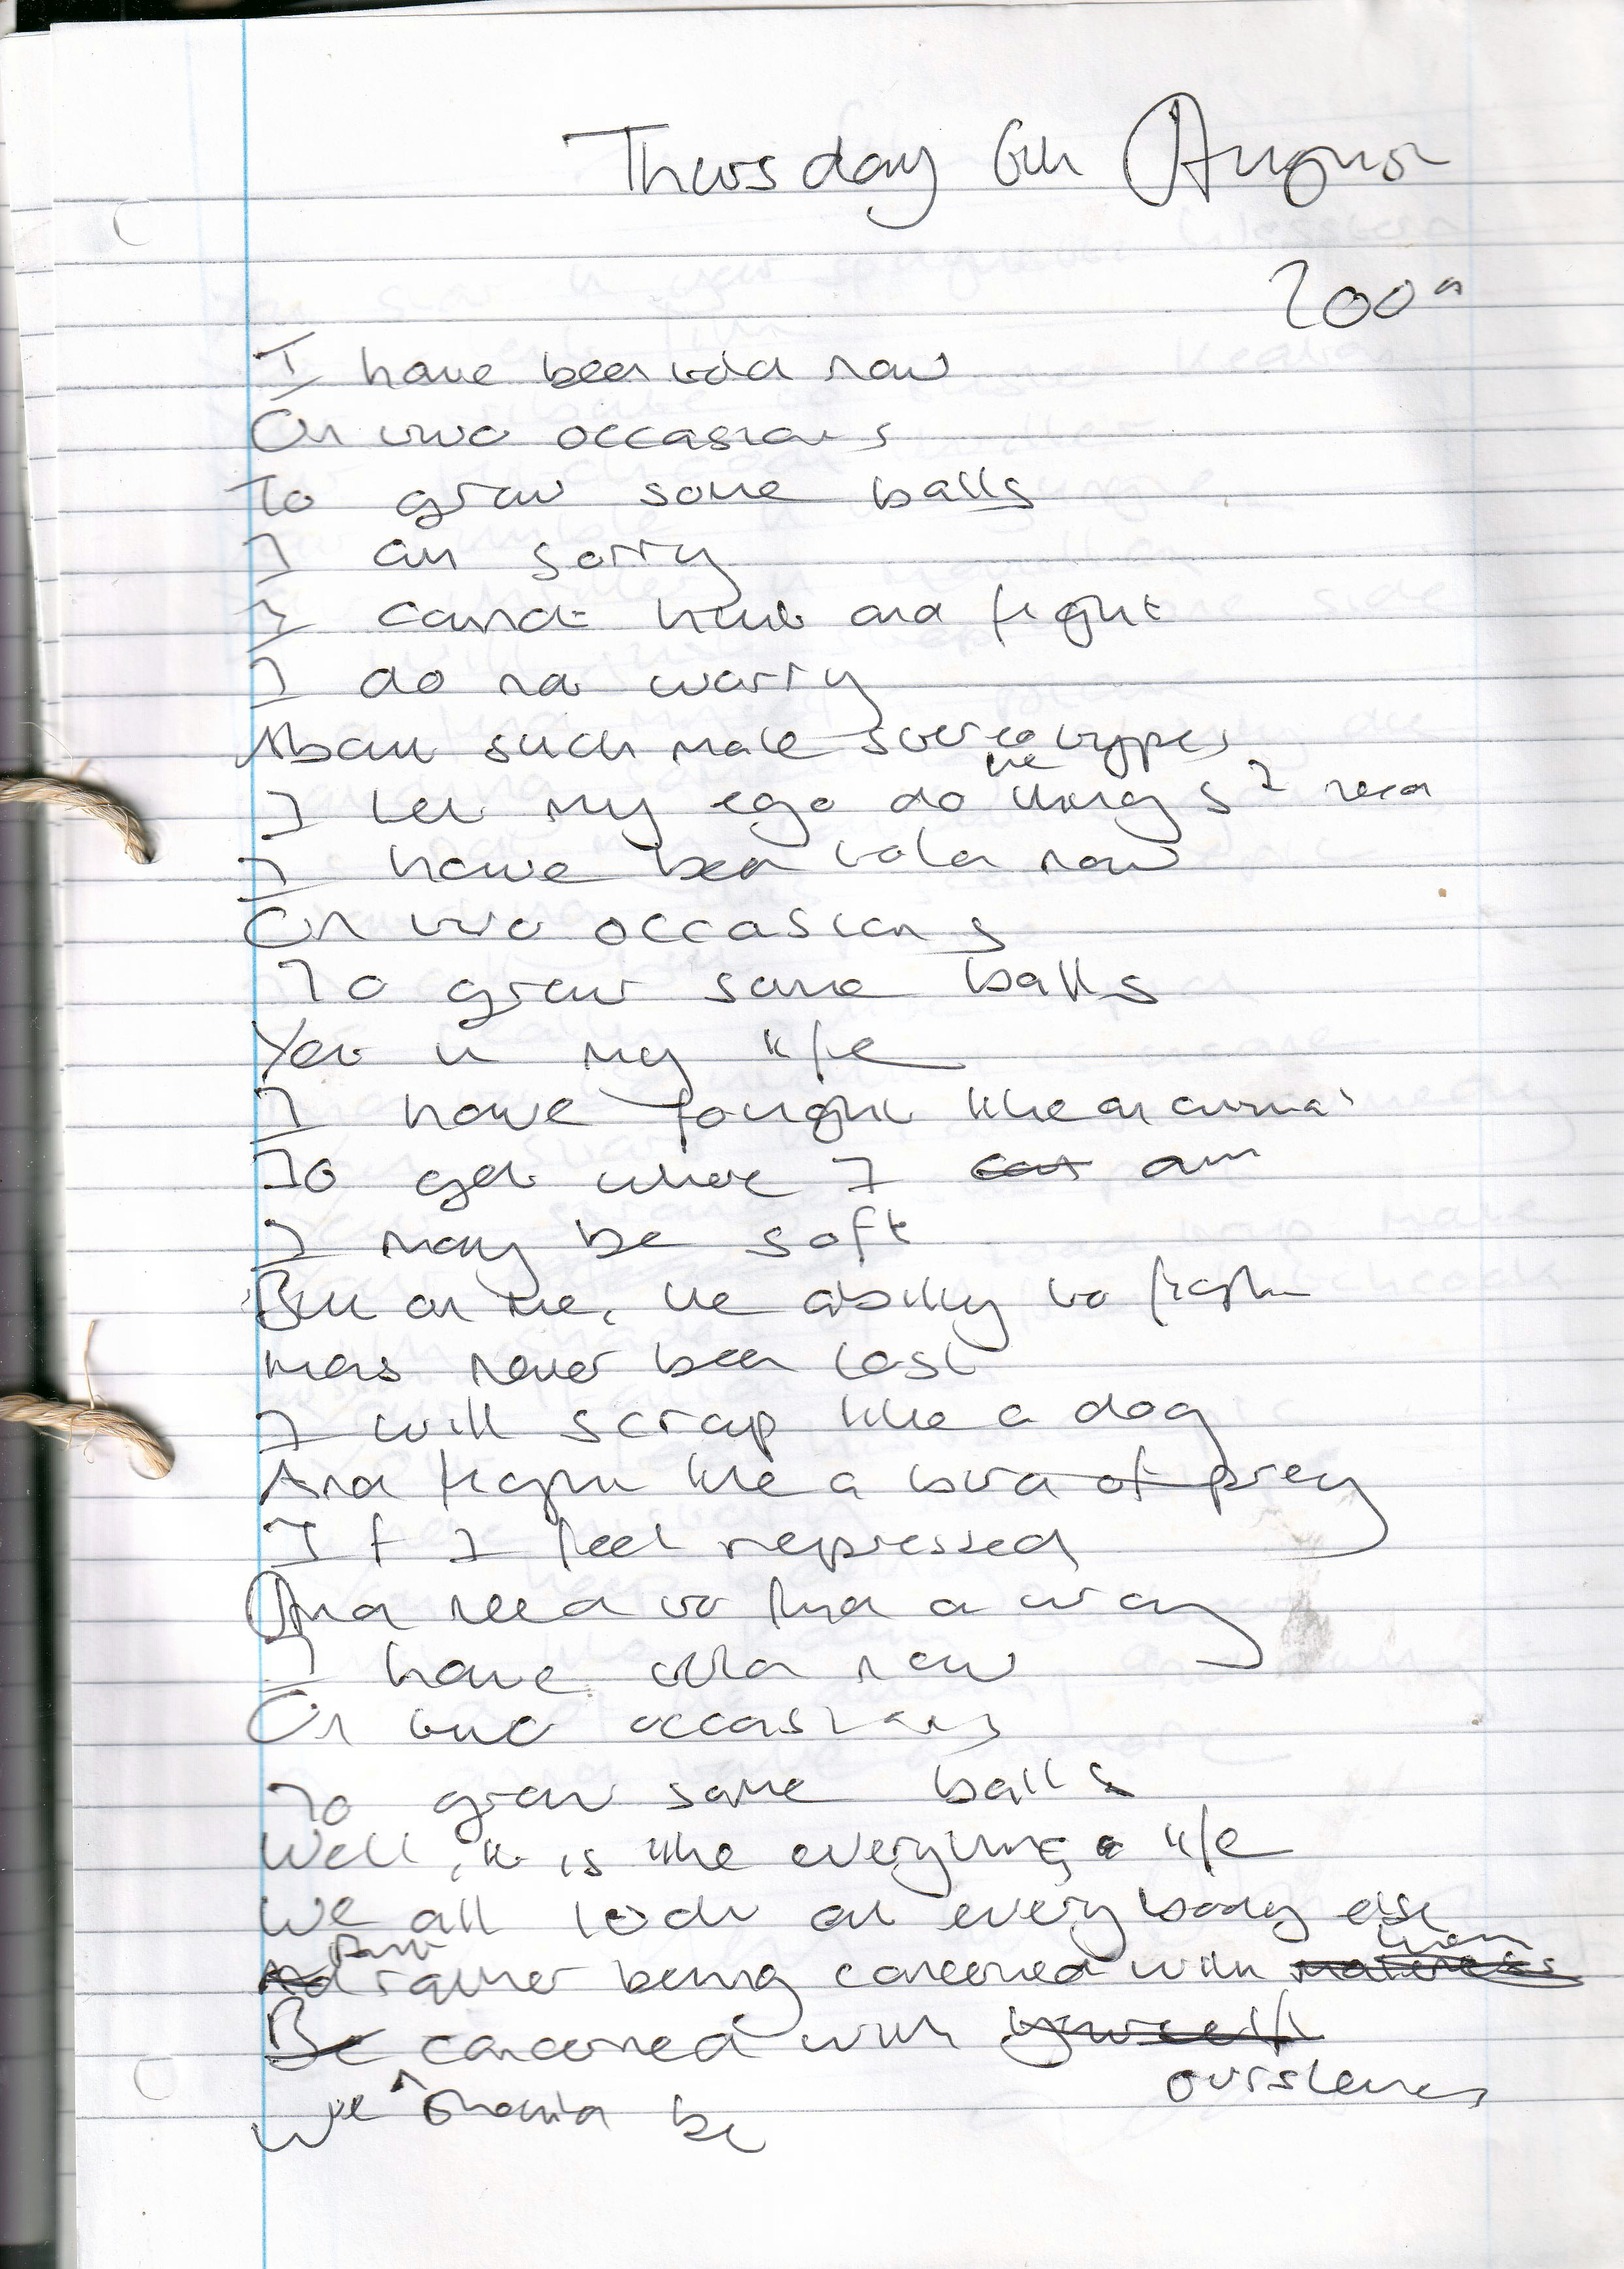 Thursday 6th August
2009
I have been told now
On two occasions
To grow some balls
I am sorry
I cannot hunt and fight
I do not worry
About such male stereotypes
I let my ego do the things I need
I have been told now
On two occasions
To grow some balls
Yet in my life
I have fought like an animal
To get where I am
I may be soft
But on me, the ability to fight
Has never been lost
I will scrap like a dog
And fight like a bird of prey
If I feel repressed
And need to find a way
I have told now
On two occasions
To grow some balls
Well, it is like everything, life
We all look at everybody else
rather being concerned with
Be concerned with yourself
oursleves
We should be